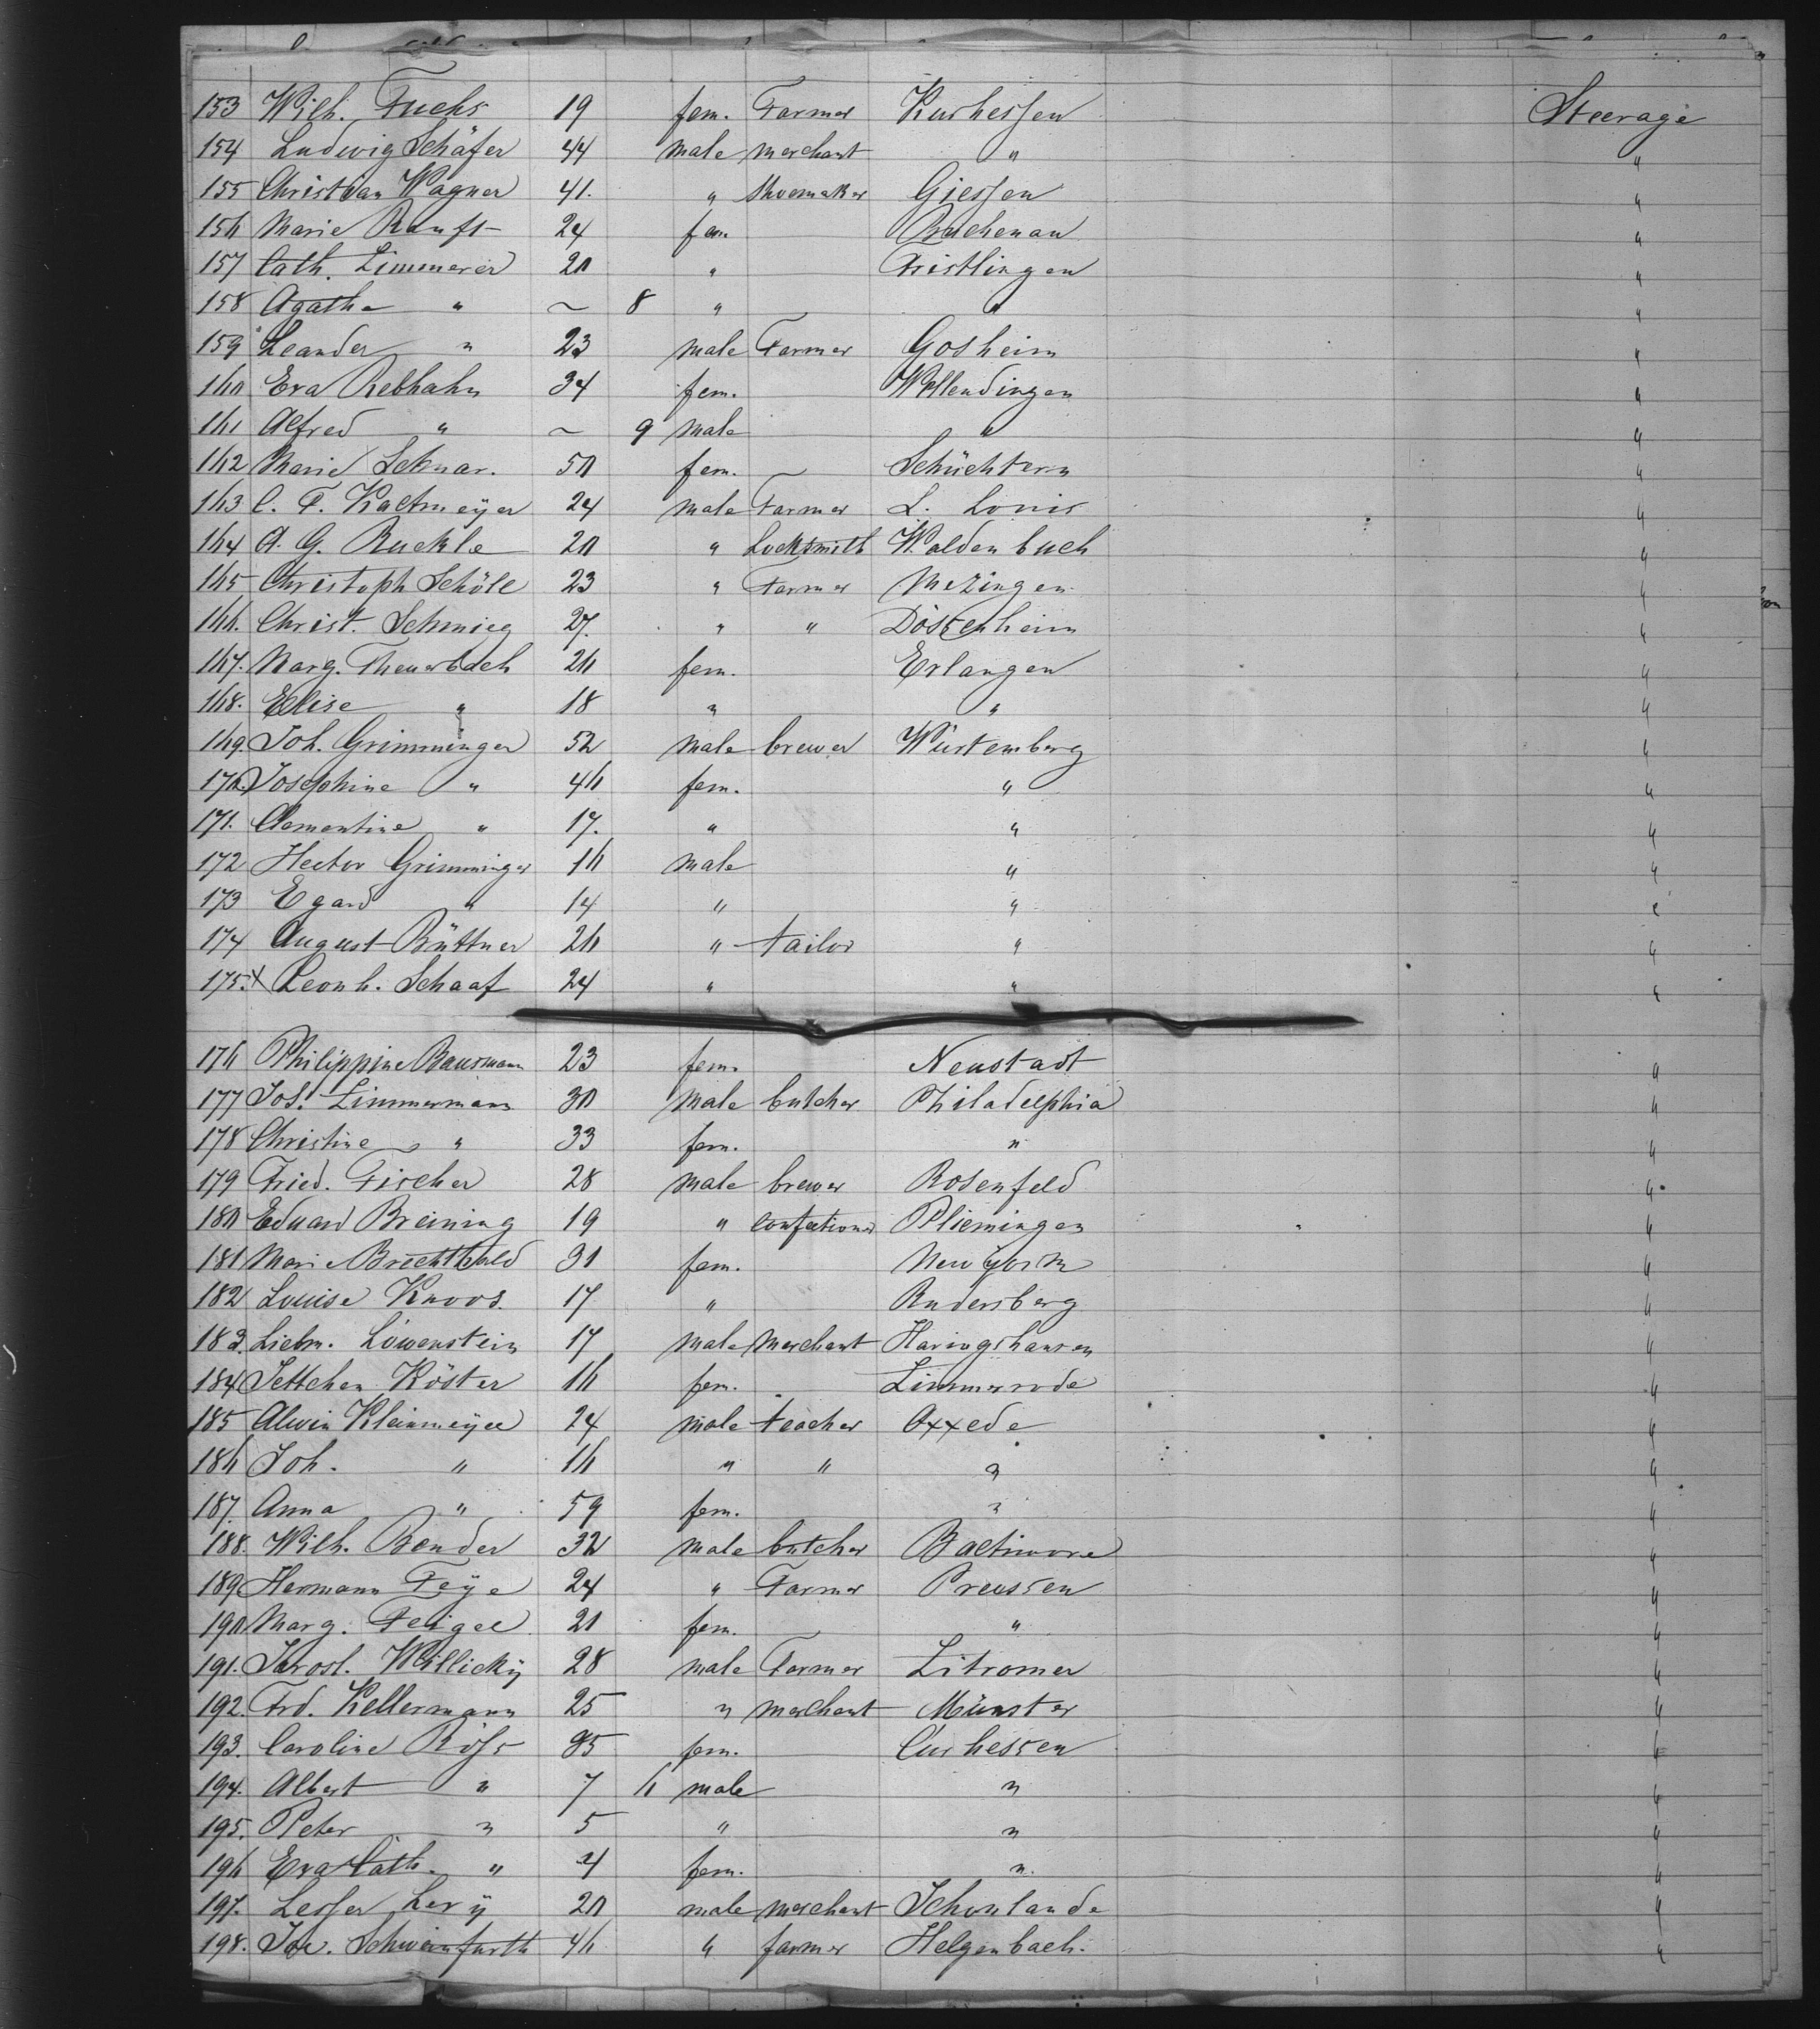 153 Wilh. Fuchs 19 fem. Farmer Kurhessen Steerage
154 Ludwig Schäfer 44 male merchant " "
155 Christian Wagner 41. " Shoemaker Giessen "
156 Marie Ranft 24 fem. Buchenau "
157 Cath. Zimmerer 20 " Fristlingen "
158 Agathe " ~ 8 " " "
159 Leander " 23 male Farmer Gosheim "
160 Eva Rebhahn 34 fem. Wellendingen "
161 Alfred " ~ 9 male " "
162 Marie Seknar. 50 fem. ~ Schüchtern "
163 C. F. Kaltmeÿer 24 male Farmer L. Louis "
164 A. G. Ruckle 20 " Locksmith Waldenbuch "
165 Christoph Schöll 23 " Farmer Mezingen "
166. Christ. Schmieg 27. " " Dossenheim "
167. Marg. Theuerbach 26 fem. Erlangen "
168. Elise " 18 " " "
169. Joh. Grimminger 52 male brewer Würtemberg "
170. Josephine " 46 fem. " "
171. Clementine " 17. " " "
172 Hector Grimminger 16 male " "
173 Egard " 14 " " "
174 August Büttner 26 " tailor " "
175. x Leonh. Schaaf 24 " " "
176 Philippine Bausmann 23 fem. Neustadt "
177 Jos. Zimmermann 30 male butcher Philadelphia "
178 Christine " 33 fem. " "
179 Fried. Fischer 28 male brewer Rosenfeld "
180 Eduard Breining 19 " confectioner Plieningen "
181 Marie Brechthold 31 fem. New York "
182 Louise Knoos. 17 " Rudersberg "
183. Liebm. Löwenstein 17 male merchant Haringshausen "
184 Jettchen Köster 16 fem. Zimmerode "
185 Alwin Kleinmeÿer 24 male teacher Oxxede "
186 Joh. " 16 " " " "
187. Anna " 59 fem. " "
188. Wilh. Bender 32 male butcher Baltimore "
189. Hermann Feÿe 24 " Farmer Preussen "
190 Marg. Feigel 21 fem. " "
191. Jarosl. Willickÿ 28 male Farmer Litromer "
192. Frd. Kellermann 25 " merchant Münster "
193. Caroline Röss 35 fem. Curhessen "
194. Albert " 7 6 male " "
195. Peter " 5 " " "
196 Eva Cath. " 4 fem. " "
197. Lesser Levÿ 20 male merchant Schonlande "
198. Joe. Schweinfurth 46 " farmer Helgenbach. "